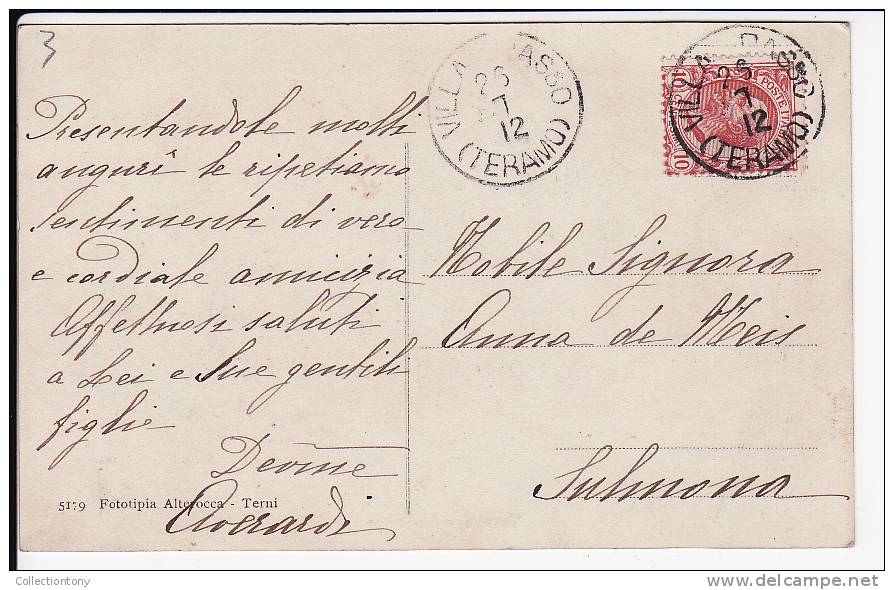 3
Presentandole molti
auguri le ripetiamo
sentimenti di vero
e cordiale amicizia
Affettuosi saluti
a Lei e Sue gentili
figlie
Devme
Averardi
5179 Fototipia Alterocca - Terni
VILLA PASSO
25
7
12
(TERAMO)
POSTE
10
10
VILLA PASSO
25
7
12
(TERAMO)
Nobile Signora
Anna de Meis
Sulmona
Collectiontony
delcampe.net